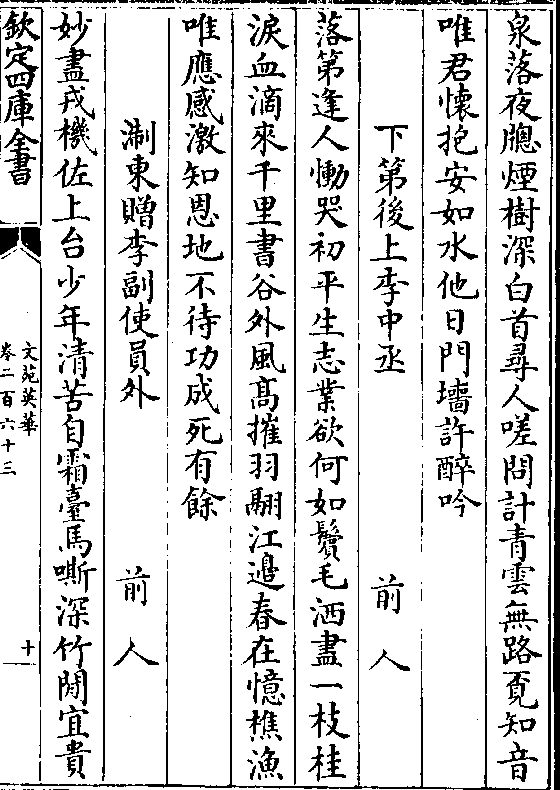 泉落夜牕煙樹深白首尋人嗟問計青雲無路覔知音
唯君懷抱安如水他日門墻許醉吟
下第後上李中丞 前人
落第逢人慟哭初平生志業欲何如鬢毛洒盡一枝桂
淚血滴來千里書谷外風髙摧羽翮江邉春在憶樵漁
唯應感激知恩地不待功成死有餘
淛東贈李副使員外 前人
妙盡戎機佐上台少年清苦自霜臺馬嘶深竹閒宜貴
欽定四庫全書
文苑英華
卷二百六十三
十